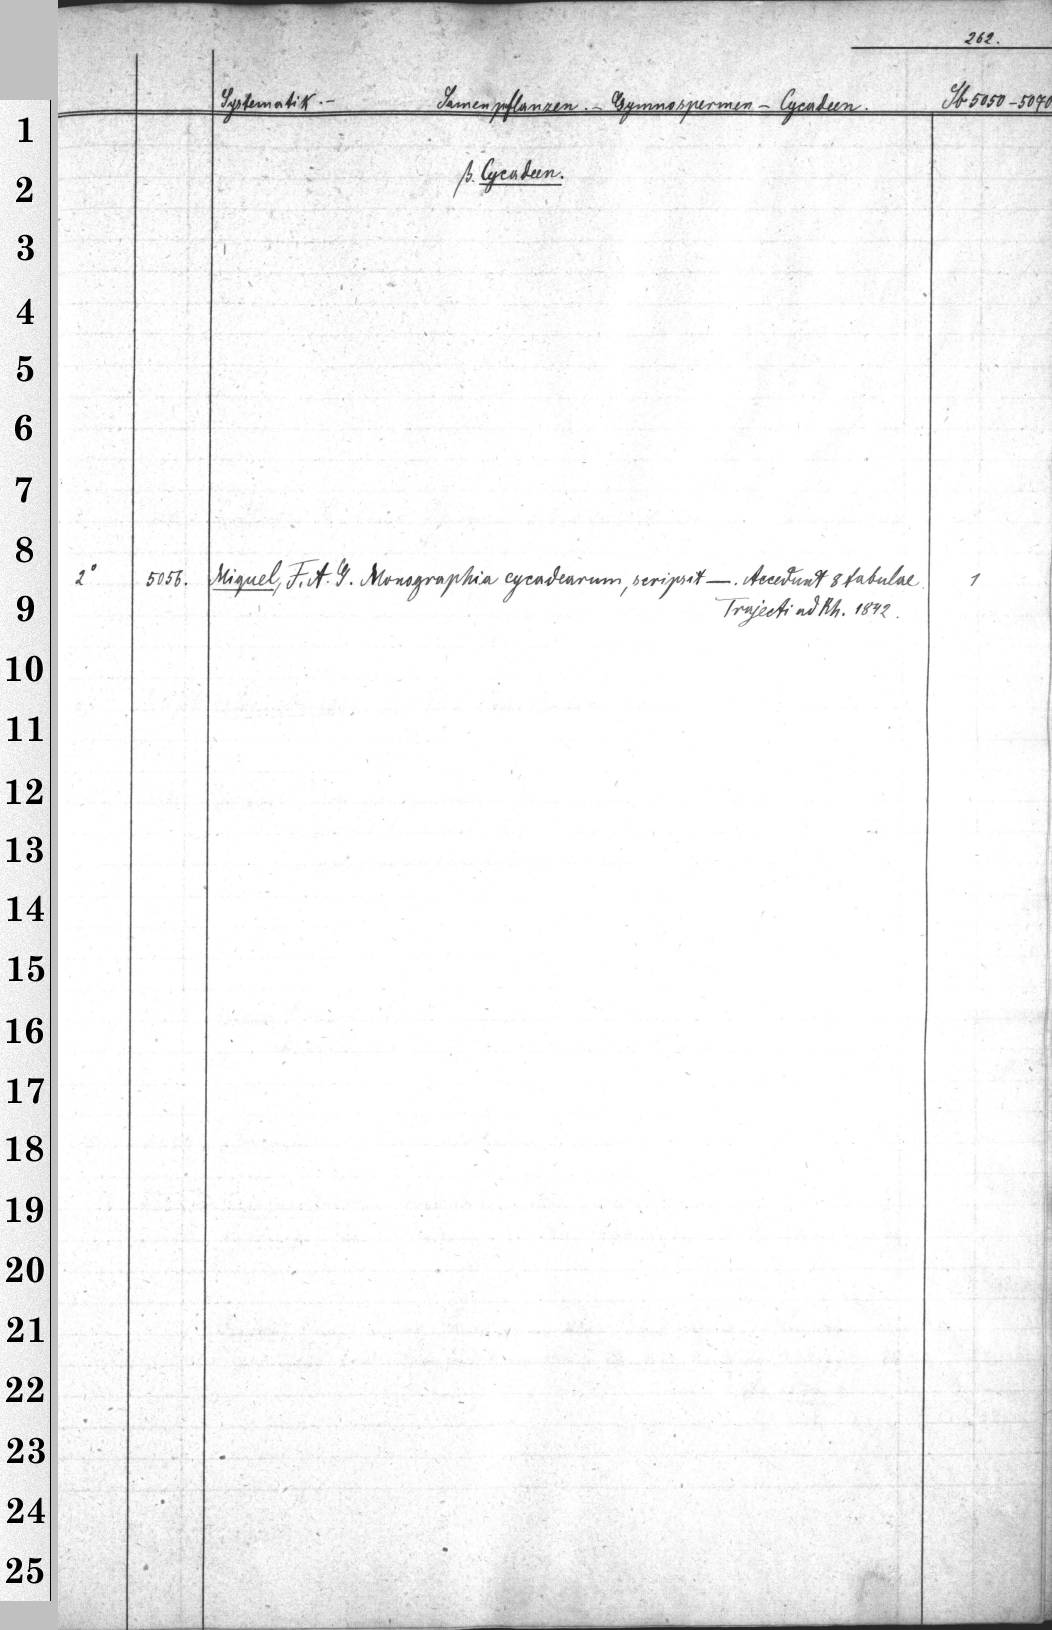 262.
Systematik. – Samenpflanzen. – Gymnospermen – Cycadeen. Sb 5050–5070
β. Cycadeen.
2° 5056. Miquel, F. A. G. Monographia cycadearum, scripsit —. Accedunt 8 tabulae. 1
Trajecti ad Rh. 1842.
1
2
3
4
5
6
7
8
9
10
11
12
13
14
15
16
17
18
19
20
21
22
23
24
25